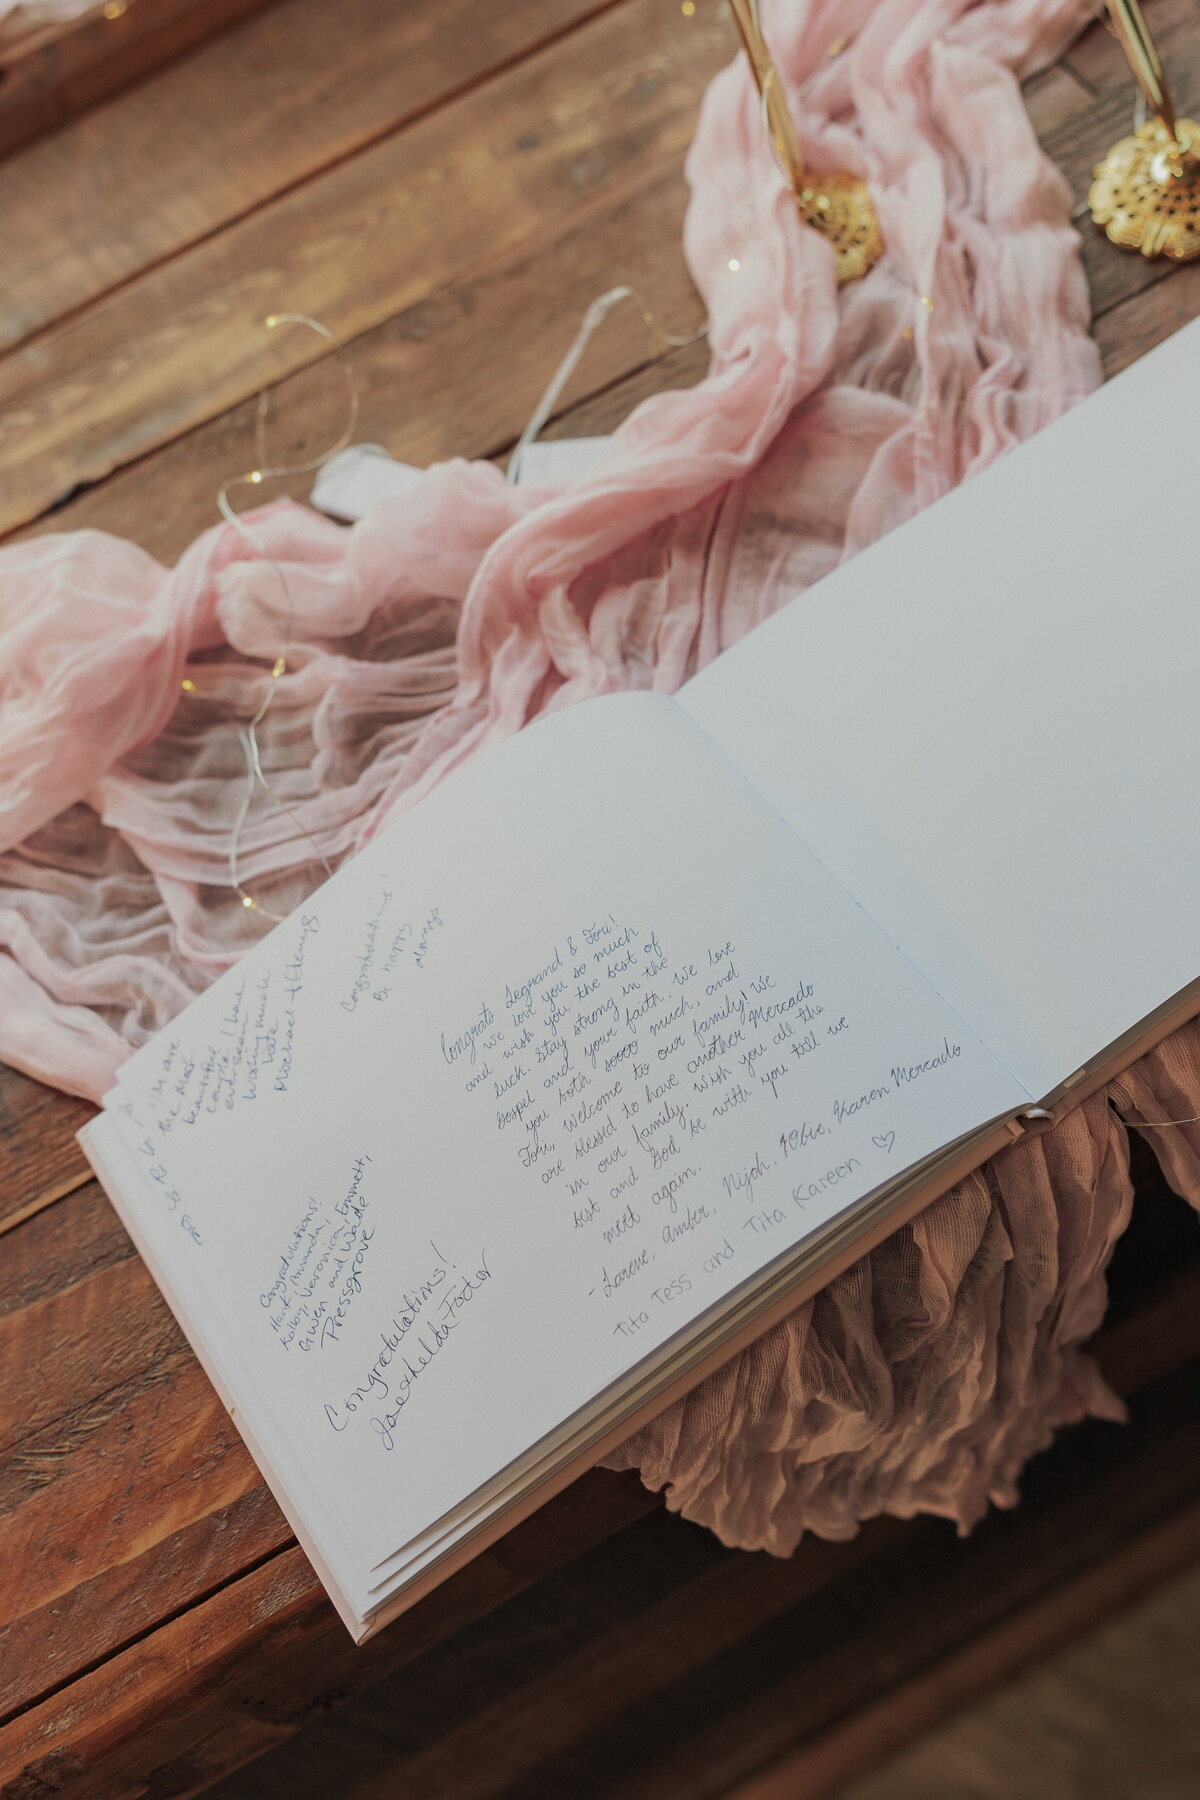 you are
the most
beautiful
couple I have
ever seen
Michael +
Congratulations!
Be happy
always
Congratulations!
Hank, Amanda,
Kolby, Veronica, Emmett,
Gwen and Wade
Pressgrove
Congratulations!
Congrats Legrand & Tori!
We love you so much
and wish you the best of
luck. Stay strong in the
Gospel and your faith. We love
you both soooo much, and
Tori, Welcome to our family! We
are blessed to have another Mercado
in our family. Wish you all the
best and God be with you till we
meet again.
- Larene, Amber, Karen Mercado
Tita Tess and Tita Kareen ♡